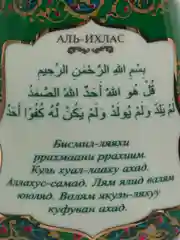 АЛЬ-ИХЛАС
بِسْمِ اللهِ الرَّحْمَنِ الرَّحِيمِ
قُلْ هُوَ اللهُ أَحَدٌ اللهُ الصَّمَدُ
لَمْ يَلِدْ وَلَمْ يُولَدْ وَلَمْ يَكُنْ لَهُ كُفُوًا أَحَدٌ
Бисмил-ляяхи
ррахмаани ррахиим.
Куль хуал-лааху ахад.
Аллахус-самад. Лям ялид валям
ююлид. Валям якуль-ляхуу
куфуван ахад.